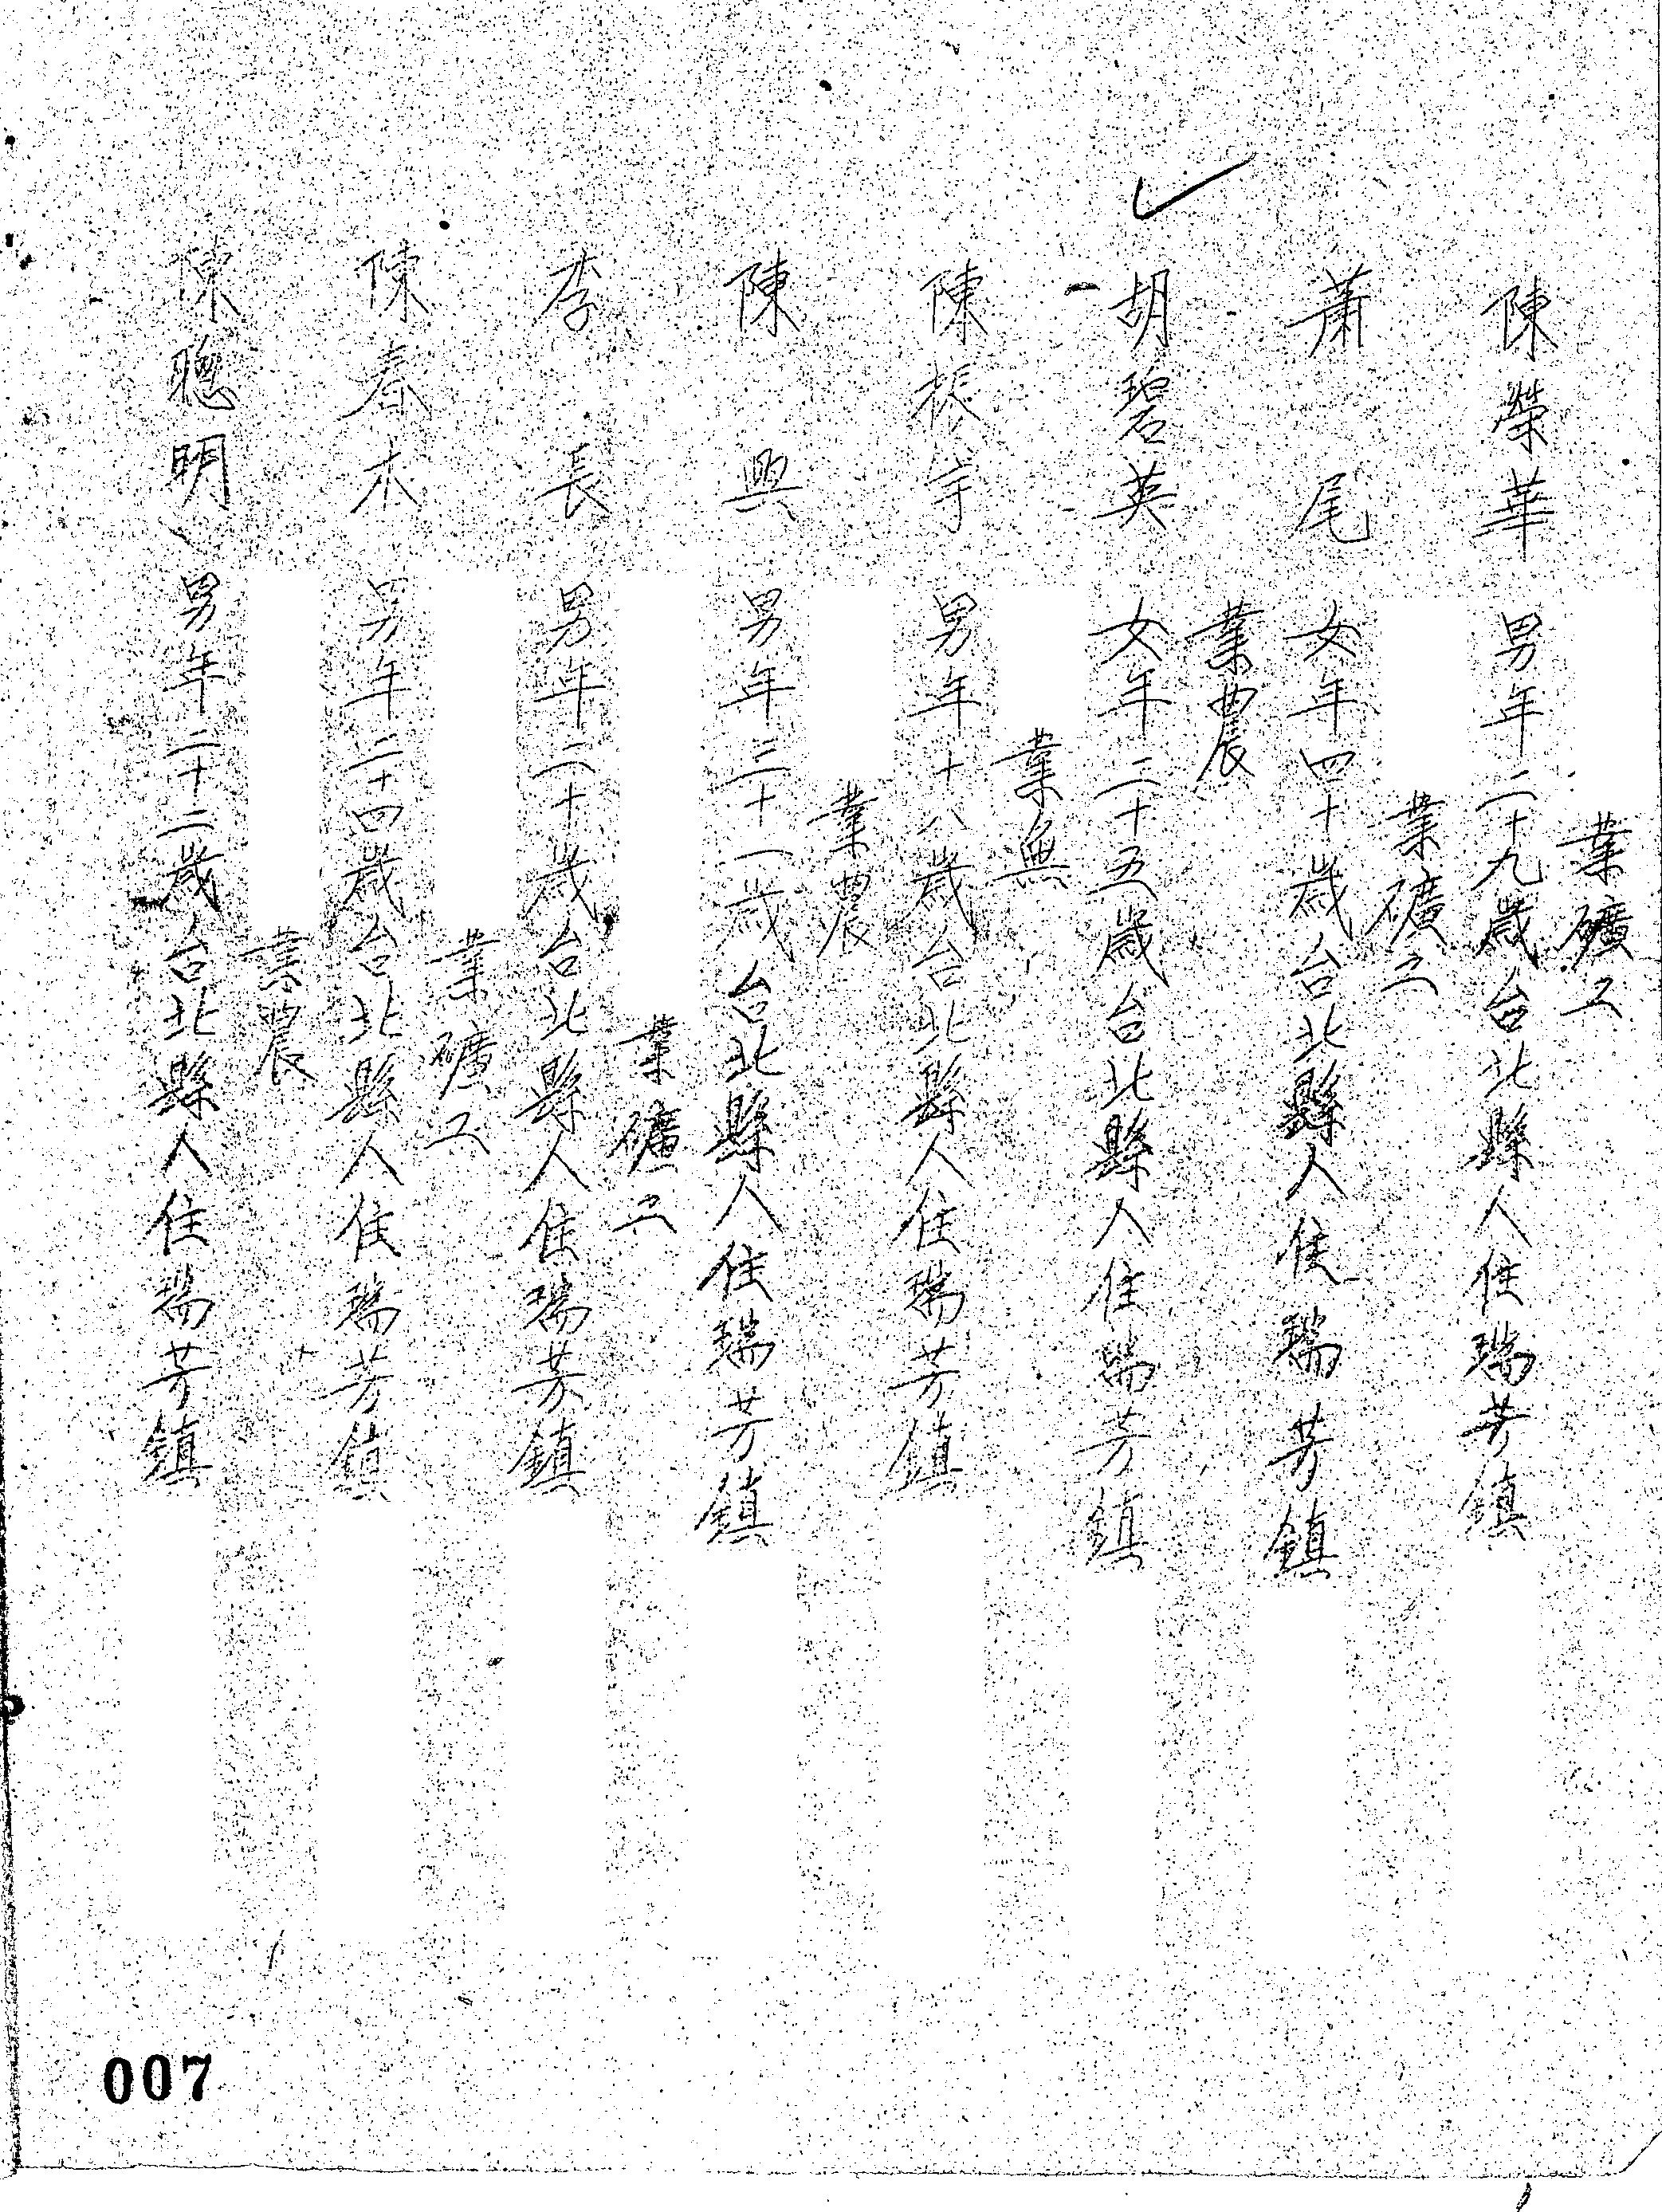 業礦工
陳榮華 男年二十九歲台北縣人住瑞芳鎮
業礦工
蕭尾 女年四十歲台北縣人住瑞芳鎮
業農
胡碧英 女年二十五歲台北縣人住瑞芳鎮
業魚
陳根宇 男年十八歲台北縣人住瑞芳鎮
業農
陳興 男年二十一歲台北縣人住瑞芳鎮
業礦工
李長 男年二十歲台北縣人住瑞芳鎮
業礦工
陳春本 男年二十四歲台北縣人住瑞芳鎮
業農
陳聰明 男年二十二歲台北縣人住瑞芳鎮
007